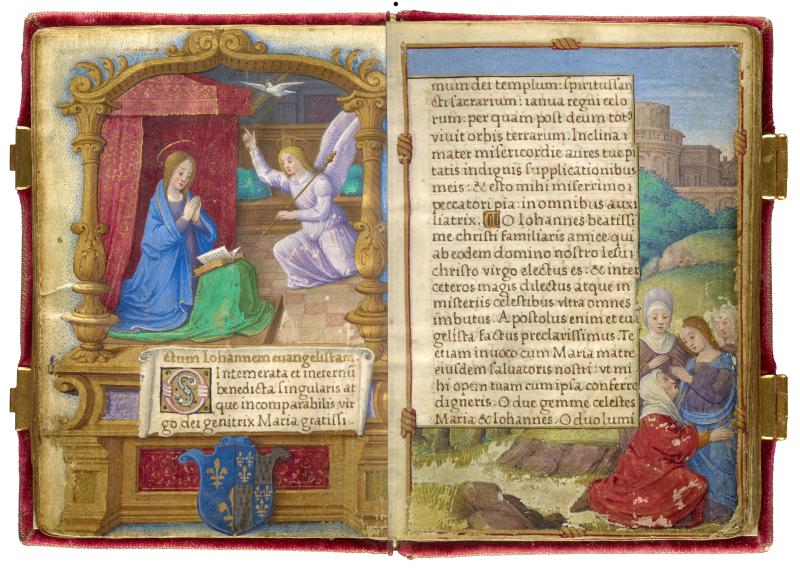 ctum Iohannem euangelistam.
S Intemerata et ineternū
benedicta singularis at
que incomparabilis vir
go dei genitrix Maria gratissi
mum dei templum: spiritussan
cti sacrarium: ianua regni celo
rum: per quam post deum totꝯ
viuit orbis terrarum. Inclina i
mater misericordie aures tue pi
tatis indignis supplicationibus
meis: & esto mihi miserrimo i
peccatori pia: in omnibus auxi
liatrix. O Iohannes beatissi
me christi familiaris amice: qui
ab eodem domino nostro Iesu
christo virgo electus es: & inter
ceteros magis dilectus atque in
misteriis celestibus vltra omnes
imbutus. Apostolus enim et eua
gelista factus preclarissimus. Te
etiam inuoco cum Maria matre
eiusdem saluatoris nostri: vt mi
hi opem tuam cum ipsa conferre
digneris. O due gemme celestes
Maria & Iohannes. O duo lumi